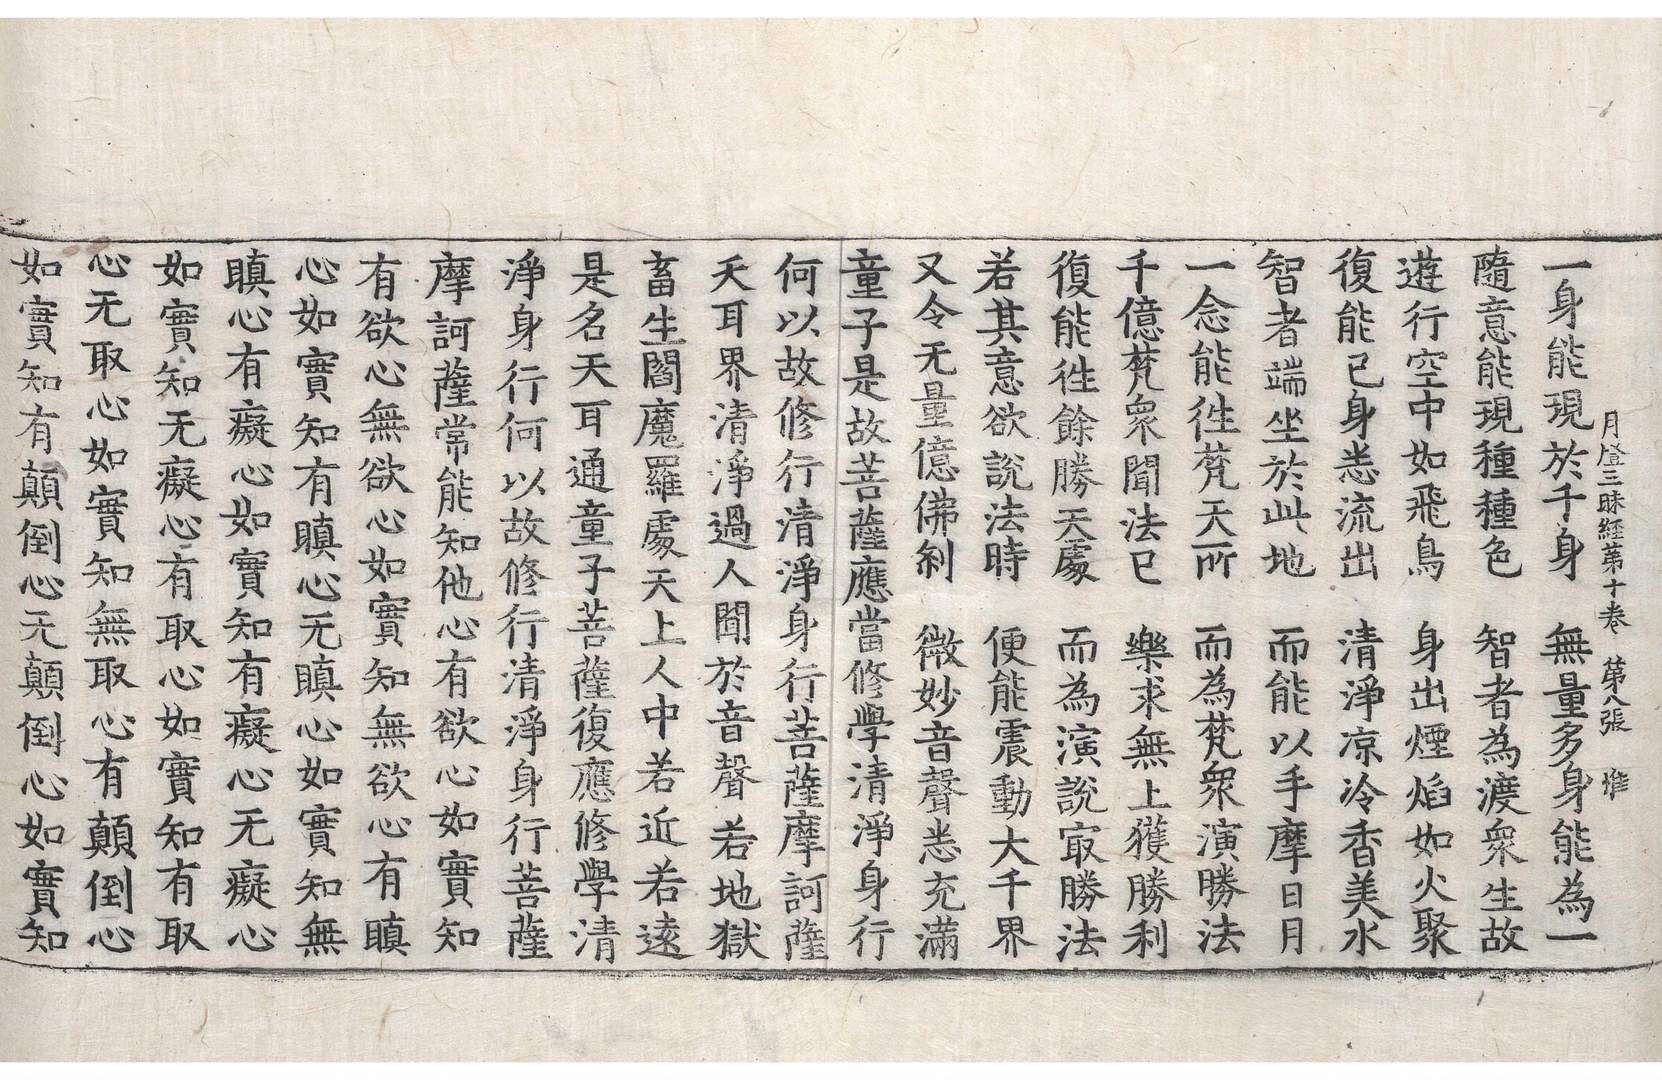 月燈三昧經第十卷　第八張　惟
一身能現於千身　無量多身能為一
隨意能現種種色　智者為渡衆生故
遊行空中如飛鳥　身出煙焰如火聚
復能已身悉流出　清淨凉冷香美水
智者端坐於此地　而能以手摩日月
一念能徃梵天所　而為梵衆演勝法
千億梵衆聞法已　樂求無上獲勝利
復能徃餘勝天處　而為演說㝡勝法
若其意欲說法時　便能震動大千界
又令无量億佛刹　微妙音聲悉充滿
童子是故菩薩應當修學清淨身行
何以故修行清淨身行菩薩摩訶薩
天耳界清淨過人聞於音聲若地獄
畜生閻魔羅處天上人中若近若遠
是名天耳通童子菩薩復應修學清
淨身行何以故修行清淨身行菩薩
摩訶薩常能知他心有欲心如實知
有欲心無欲心如實知無欲心有瞋
心如實知有瞋心无瞋心如實知無
瞋心有癡心如實知有癡心无癡心
如實知无癡心有取心如實知有取
心无取心如實知無取心有顛倒心
如實知有顛倒心无顛倒心如實知